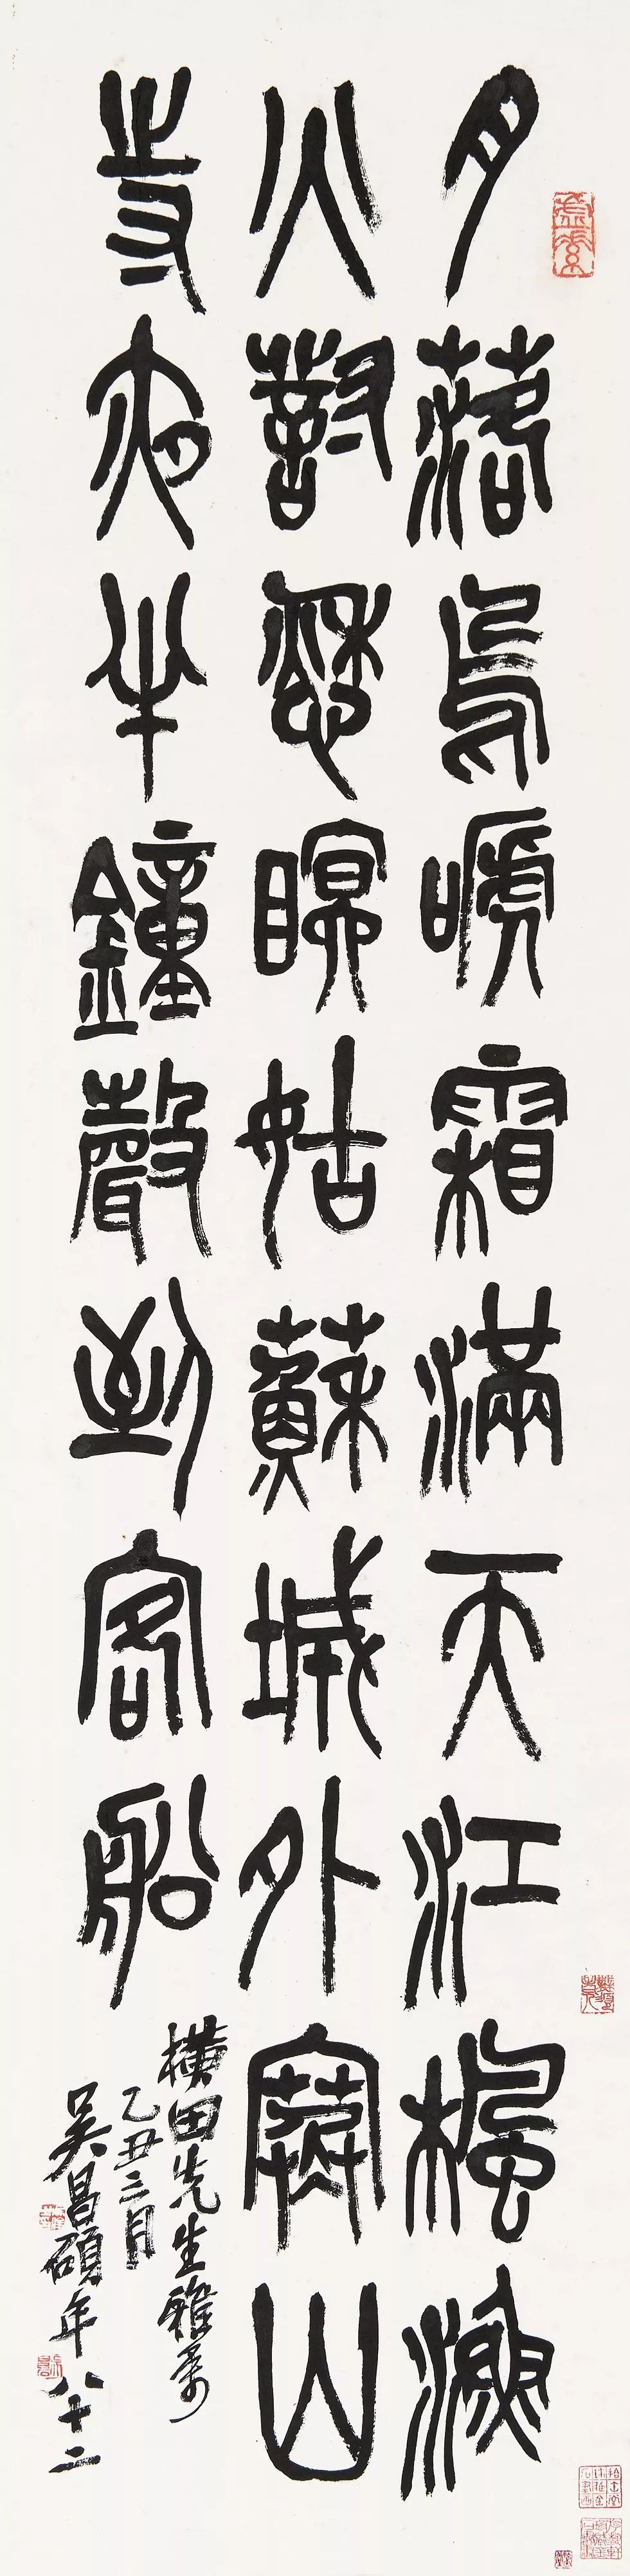 月落烏嗁霜滿天江楓漁
火對愁瞑姑蘇城外寒山
寺夜半鐘聲到客船
横田先生雅屬
乙丑三月
吳昌碩年八十二